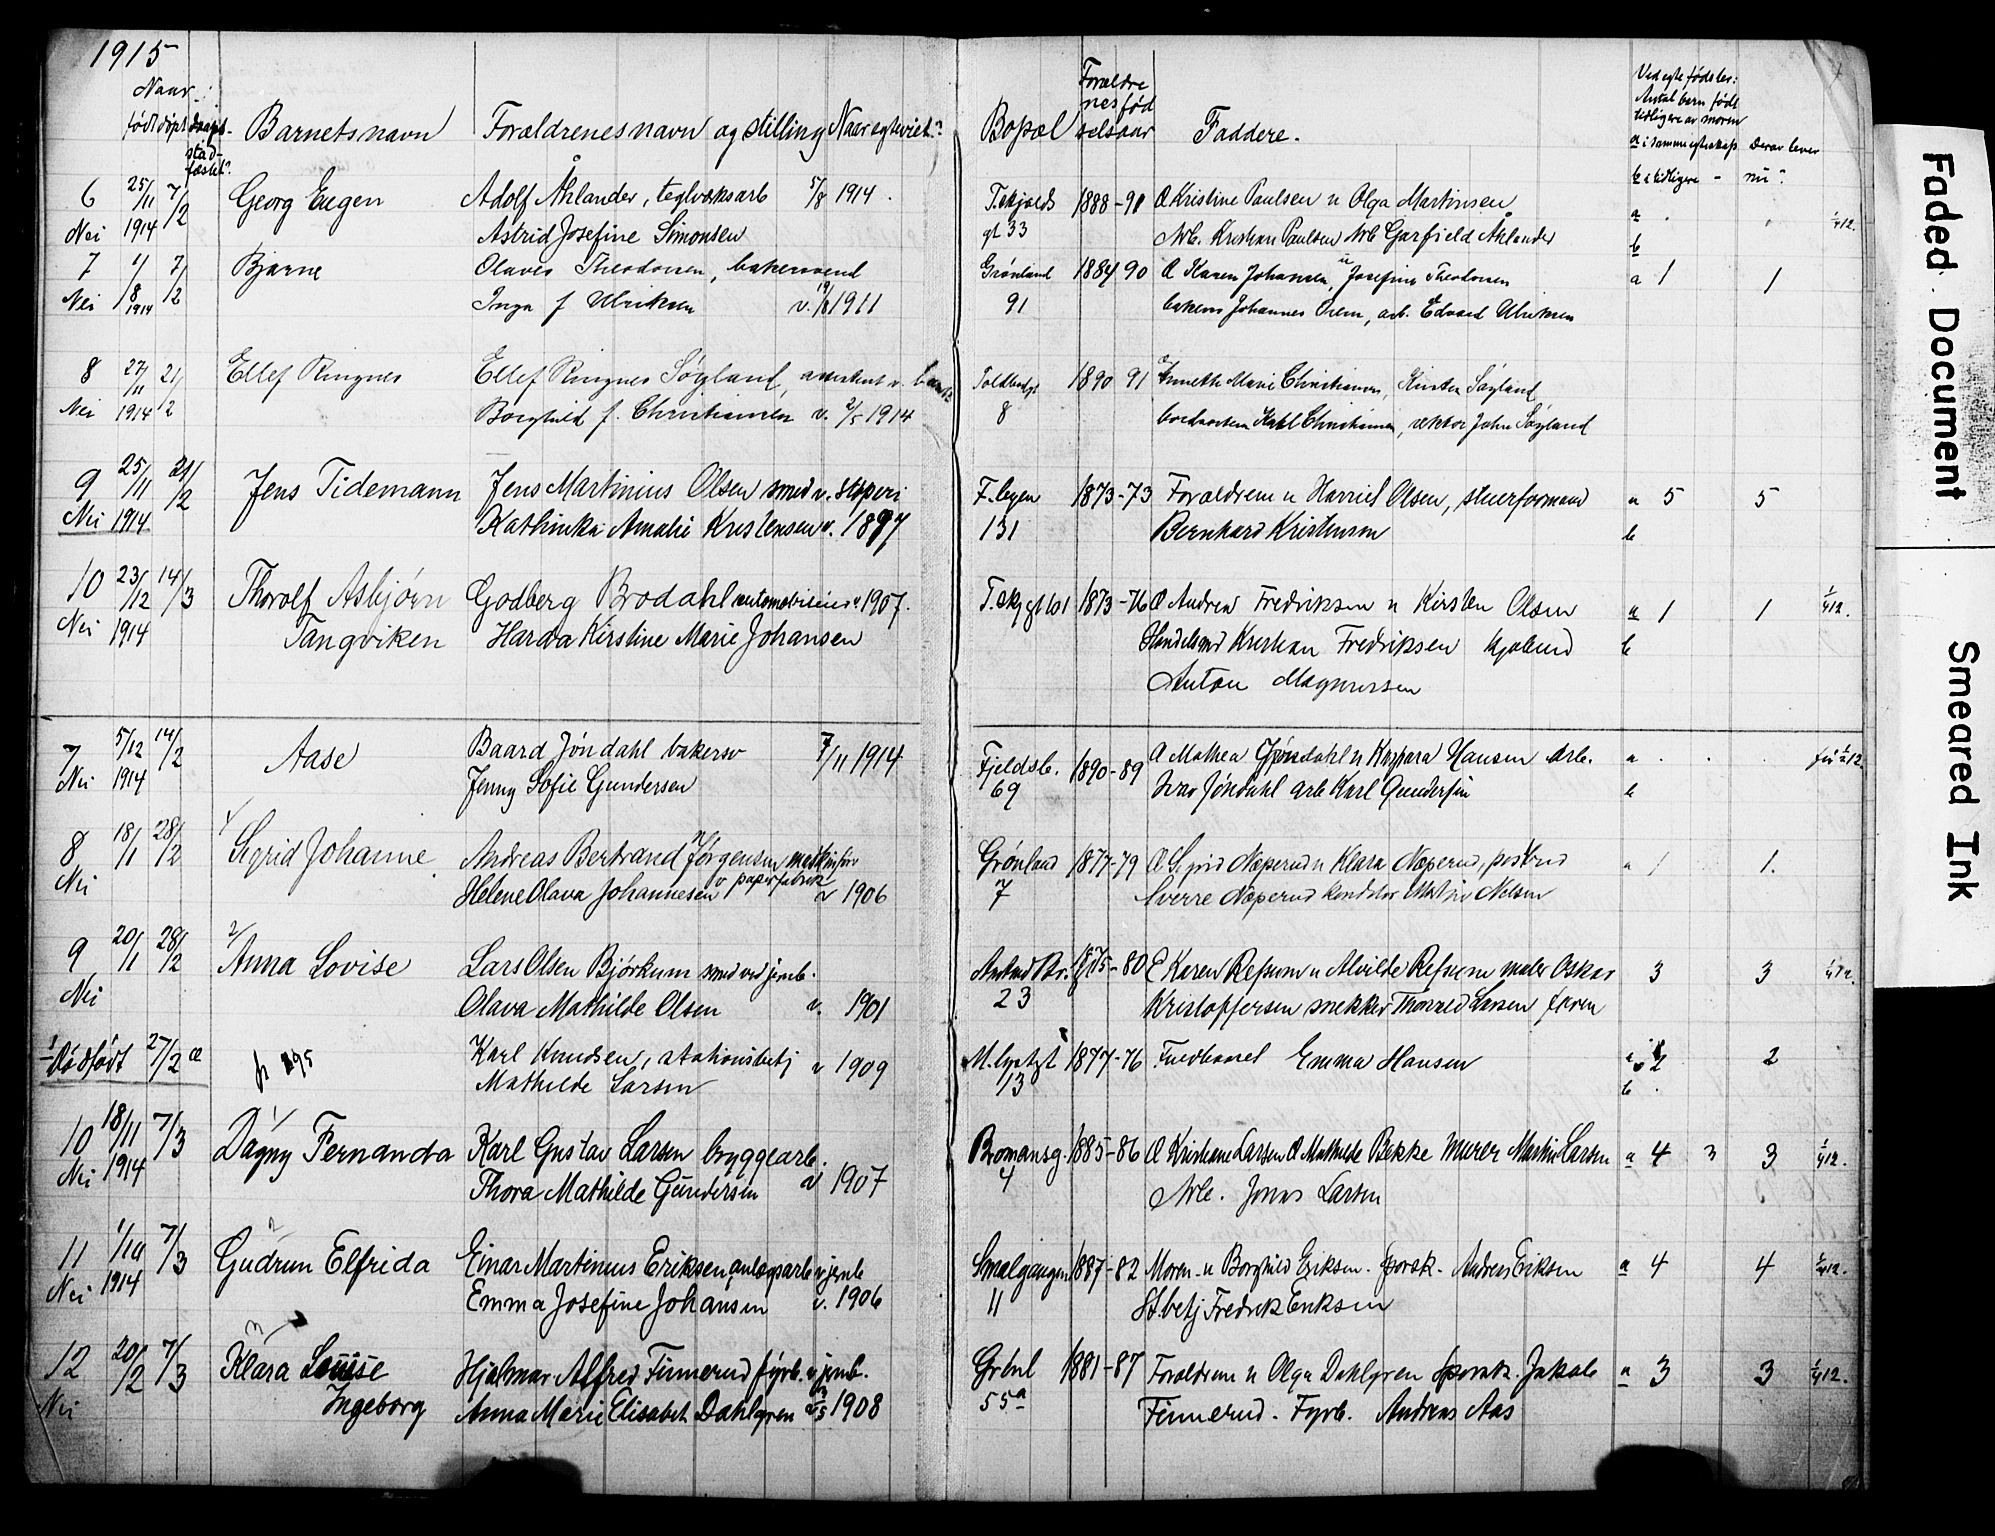 1915
Naar
født døpt daaps-
stad-
fæstet?
Barnets navn
Forældrenes navn og stilling
Naar egteviet?
Bopæl
Forældre
nes fød
selsaar
Faddere.
Ved egte fødsler:
Antal barn født
tidligere av moren
a i samme egteskap Derav lever
b i tidligere - nu?
6 25/11 7/2 Georg Eugen Adolf Åhlander, teglverksarb 5/8 1914. T.skjolds 1888-91 Kristine Paulsen u Olga Martinsen a
Nei 1914 Astrid Josefine Simonsen gt 33 Arb. Kristian Paulsen Arb Garfield Åhlander b
7 1/8 7/2 Bjarne Olaves Theodorsen, bakersvend Grønland 1884 90 Karen Johansen, u Josefine Theodorsen a 1 1
Nei 1914 Inga f Ulriksen v. 1911 91 Johannes arb. Edvard Ulriksen
8 27/11 21/2 Ellef Ringnes Ellef Ringnes Søyland, assistent v. Toldbodgt 1890 91 Annette Marie Christiansen, Kirsten Søyland
Nei 1914 Borghild f. Christiansen v. 2/5 1914 8 Karl Christiansen, rektor John Søyland
9 25/11 21/2 Jens Tidemann Jens Martinius Olsen smed v. støperi F. byen 1873-73 Forældrene u Harriet Olsen, stuerformand a 5 5
Nei 1914 Kathinka Amalie Kristensen v. 1897 131 Bernhard Kristensen b
10 23/12 14/3 Thorolf Asbjørn Godberg Brodahl automobileier v. 1907. T.skj gt 101 1873-76 Andrea Fredriksen u Kirsten Olsen a 1 1
Nei 1914 Tangviken Harda Kirstine Marie Johansen Handelsmd Kristian Fredriksen b
Anton Magnussen
7 5/12 14/2 Aase Baard Jøndahl bakersv 7/11 1914 Fjeldsb. 1890-89 Mathea Jøndahl u Kaspara Hansen Arb. a
Nei 1914 Jenny Sofie Gundersen 69 Ivar Jøndahl arb Karl Gundersen b
8 18/1 28/2 Sigrid Johanne Andreas Bertrand Jørgensen maskinfør Grønland 1877-79 Sigrid Næperud u Klara Næperud, postbud a 1 1.
Nei v papirfabrik
Helene Olava Johannesen v 1906 7 Sverre Næperud konditor Martin Nelsen
9 20/1 28/2 Anna Lovise Lars Olsen Bjørkum smed ved jernb. 1875-80 Karen Refsum u Alvilde Refsum maler Oskar 3 3
Nei Olava Mathilde Olsen v. 1901 23 Kristoffersen snekker Thorvald Larsen
Dødfødt 27/2 Karl Knudsen, stationsbetj v 1909 13 1877-76 Emma Hansen a 2 2
Mathilde Larsen b
10 18/11 7/3 Dagny Fernanda Karl Gustav Larsen byggearb. Bromansg. 1885-86 Kristiane Larsen Mathilde Bekke Murer Martin Larsen a 4 3 3
Nei 1914 Thora Mathilde Gundersen v 1907 4 Arb. Jonas Larsen
11 1/10 7/3 Gudrun Elfrida Einar Martinius Eriksen, anlægsarb v jernb Smalgangen 1887-82 Moren u Borghild Eriksen. Andreas Eriksen a 4 4
Nei 1914 Emma Josefine Johansen v. 1906 11 St.betj Fredrik Eriksen
12 20/2 7/3 Klara Louise Hjalmar Alfred Finnerud fyrb. v jernb. Grønl 1881-87 Forældrene u Olga Dahlgren Jakob a 3 3
Nei Ingeborg Anna Marie Elisabet Dahlgren 1908 55a Finnerud. Fyrb. Andreas Aas
Faded Document
Smeared Ink